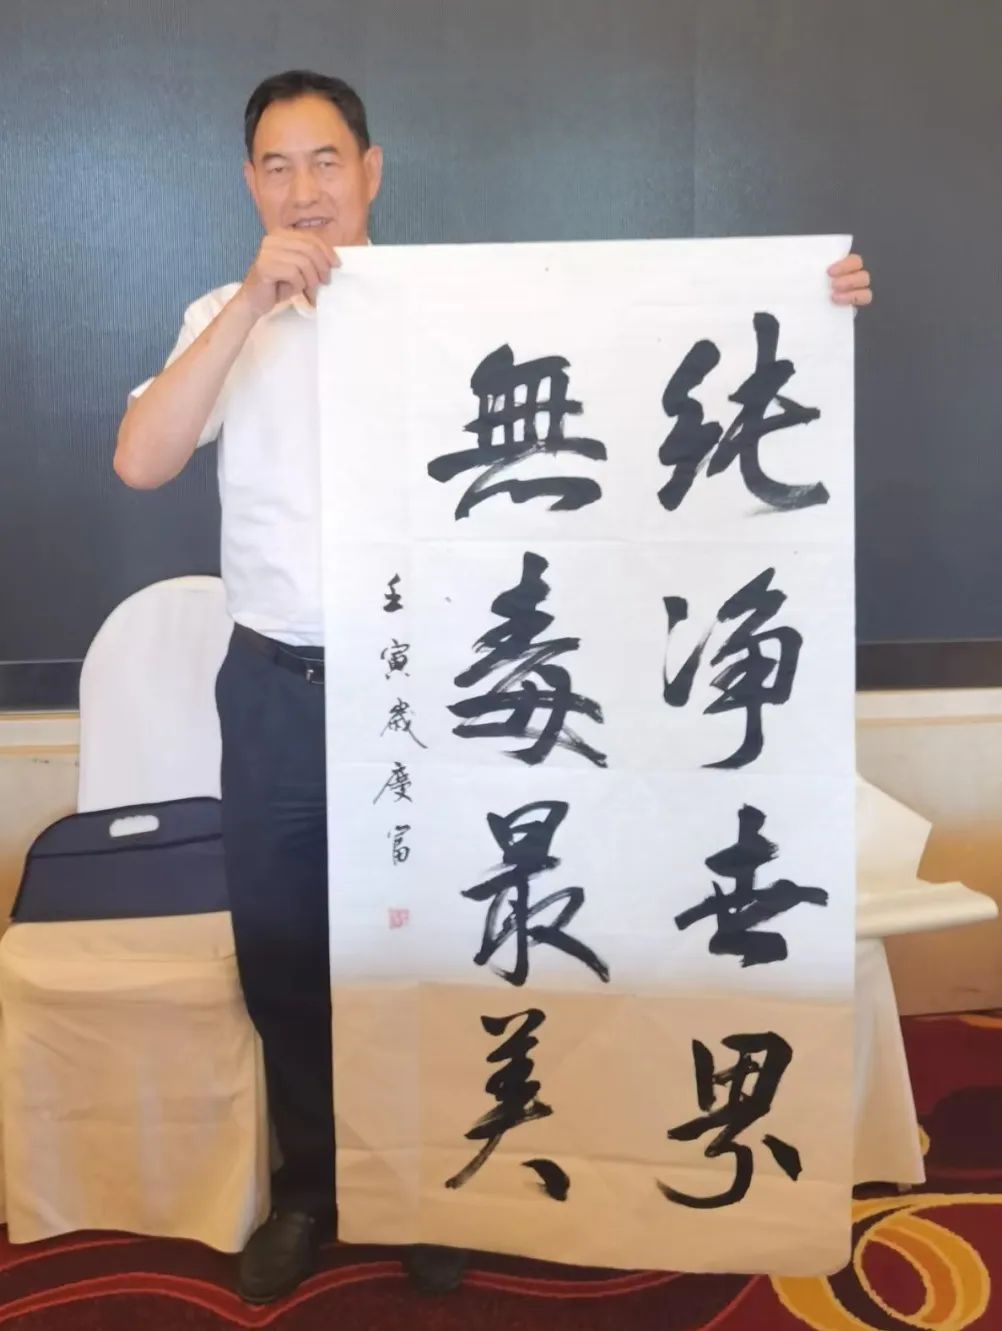 純净世界
無毒最美
壬寅歲慶富